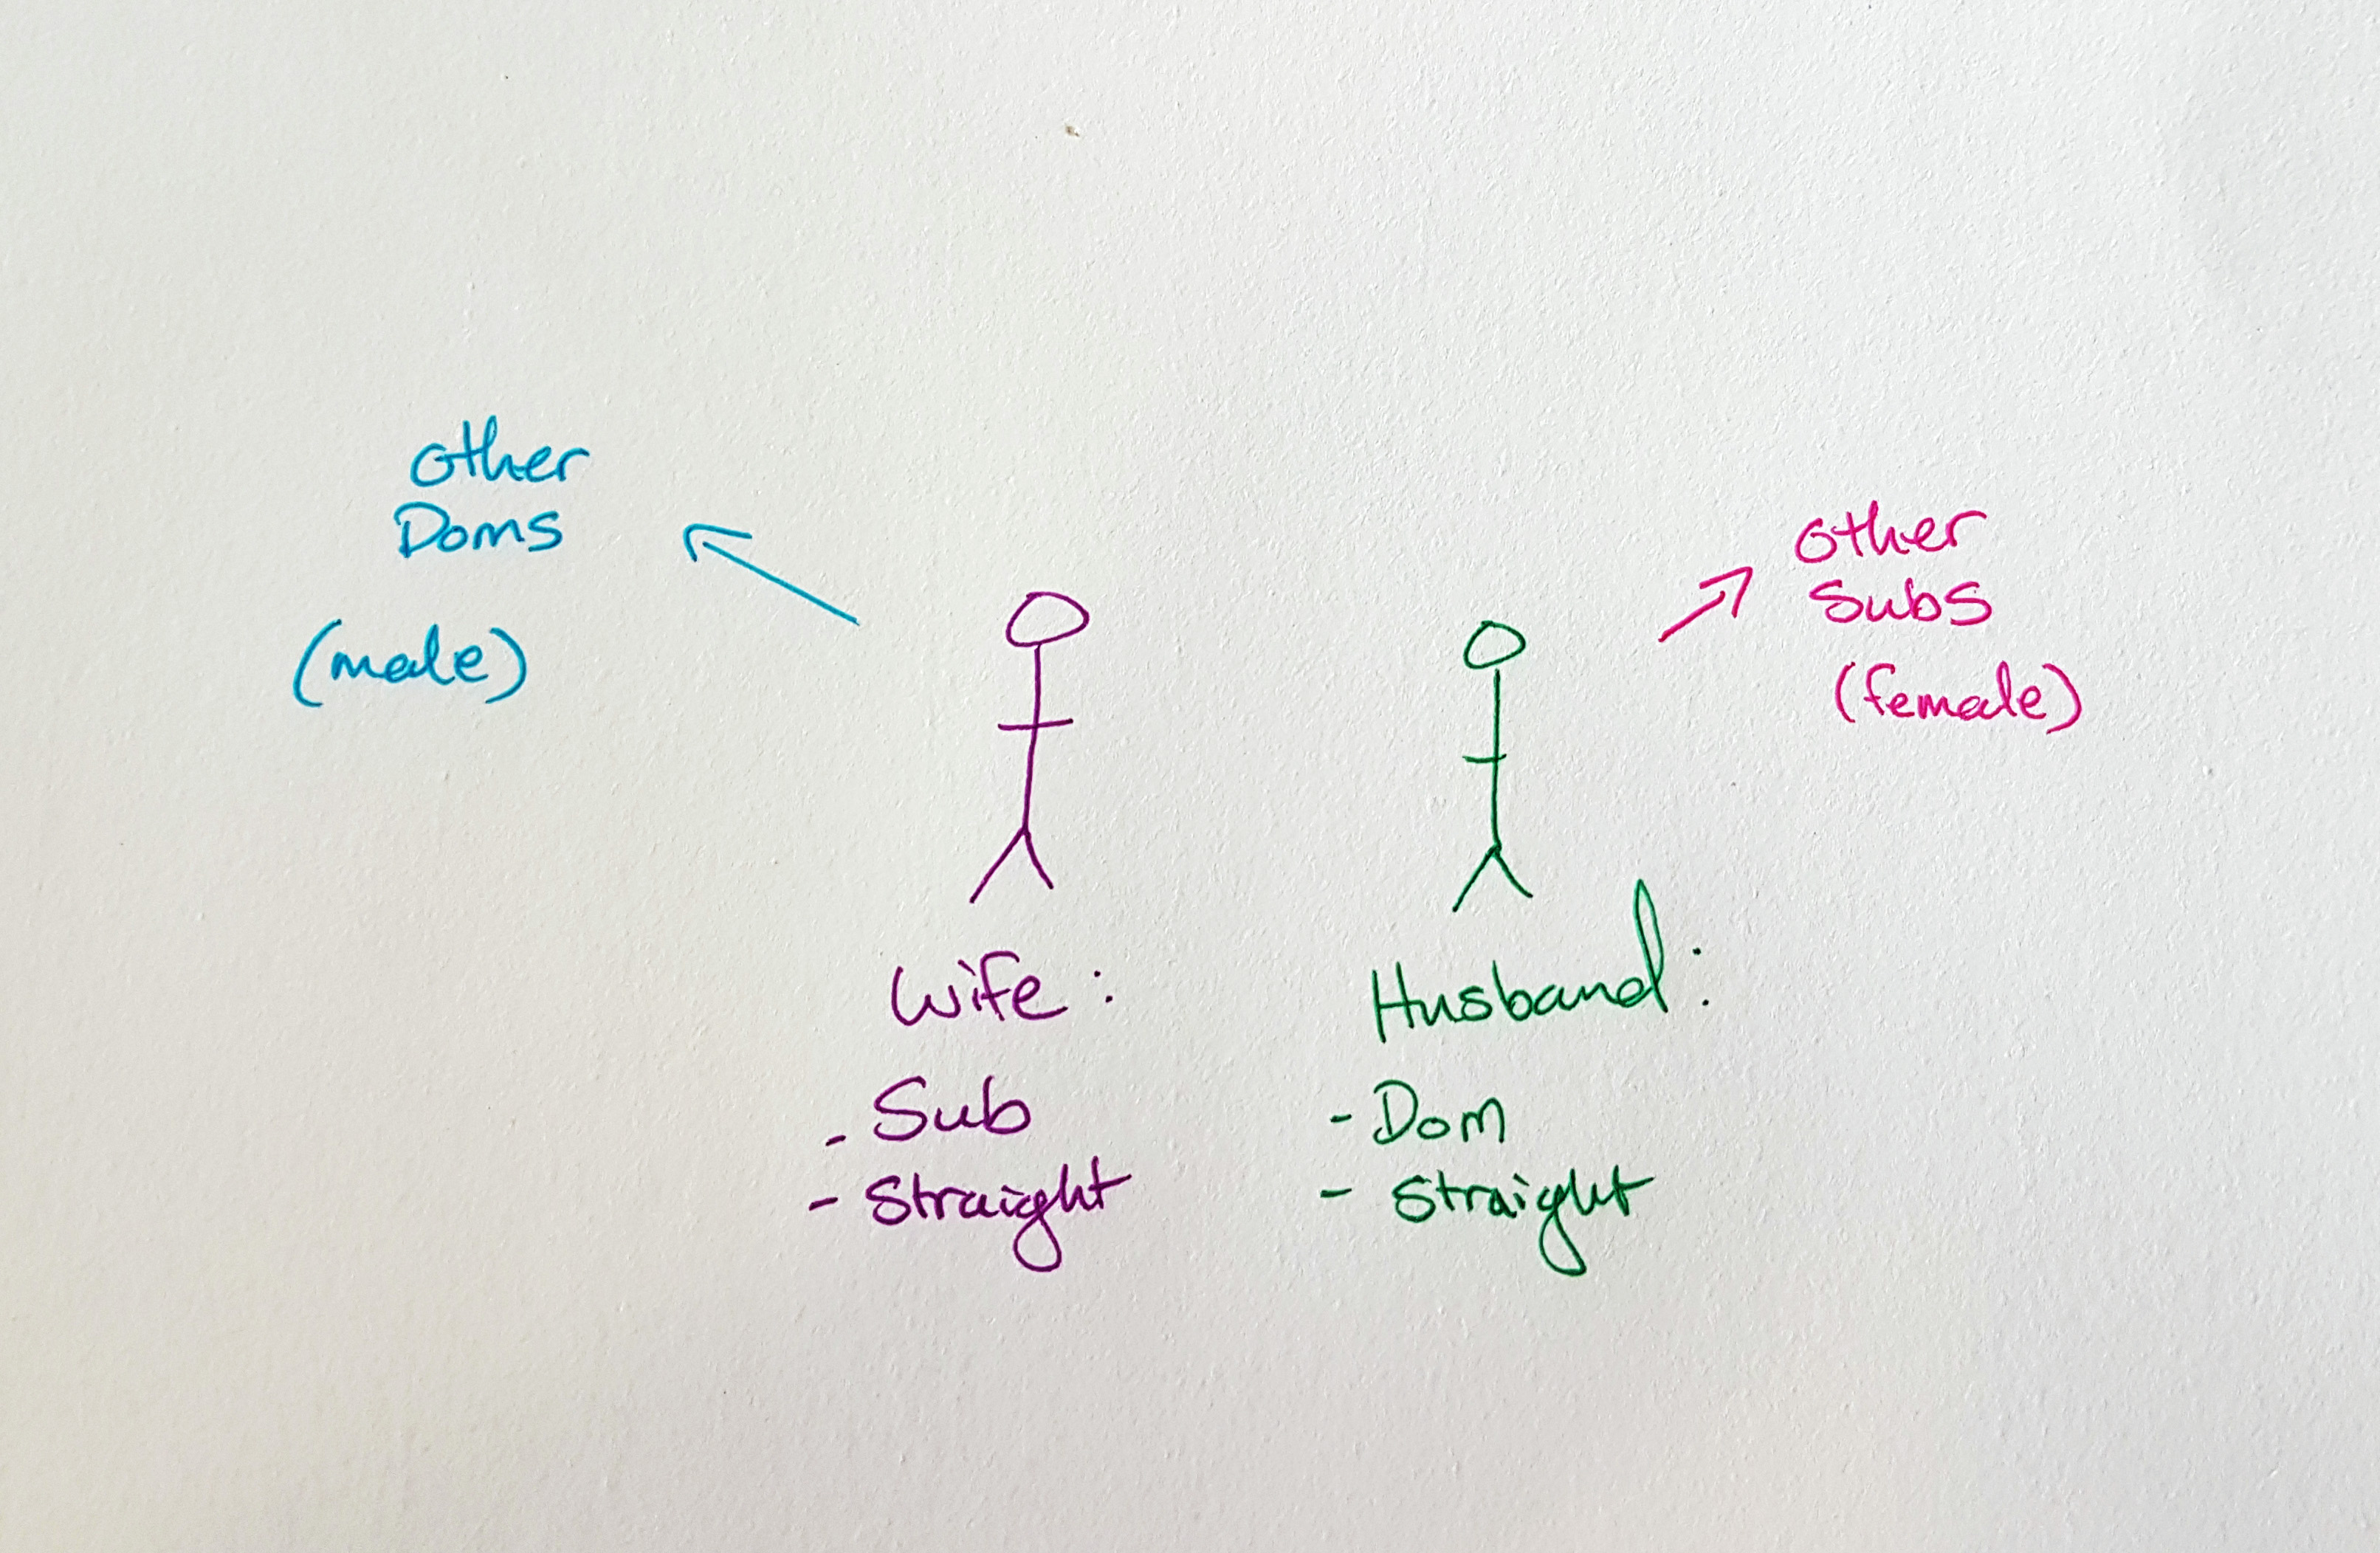 other
Doms
(male)
other
subs
(female)
Wife:
- Sub
- Straight
Husband:
- Dom
- Straight